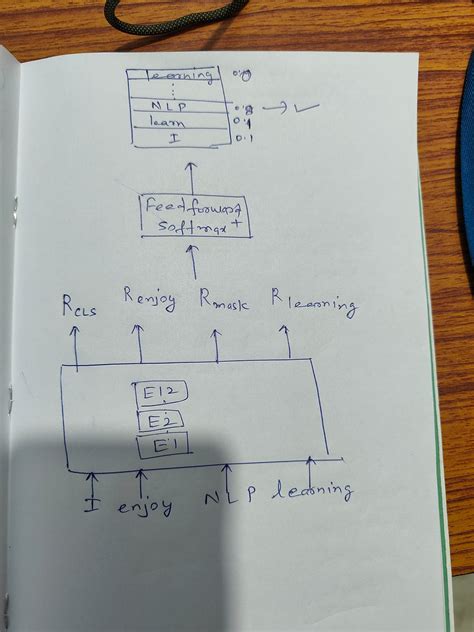 learning 0.0
NLP 0.8 → ✓
learn 0.1
I 0.1
Feedforward +
Softmax
RCLS Renjoy Rmask Rlearning
E12
E2
E1
I enjoy NLP learning